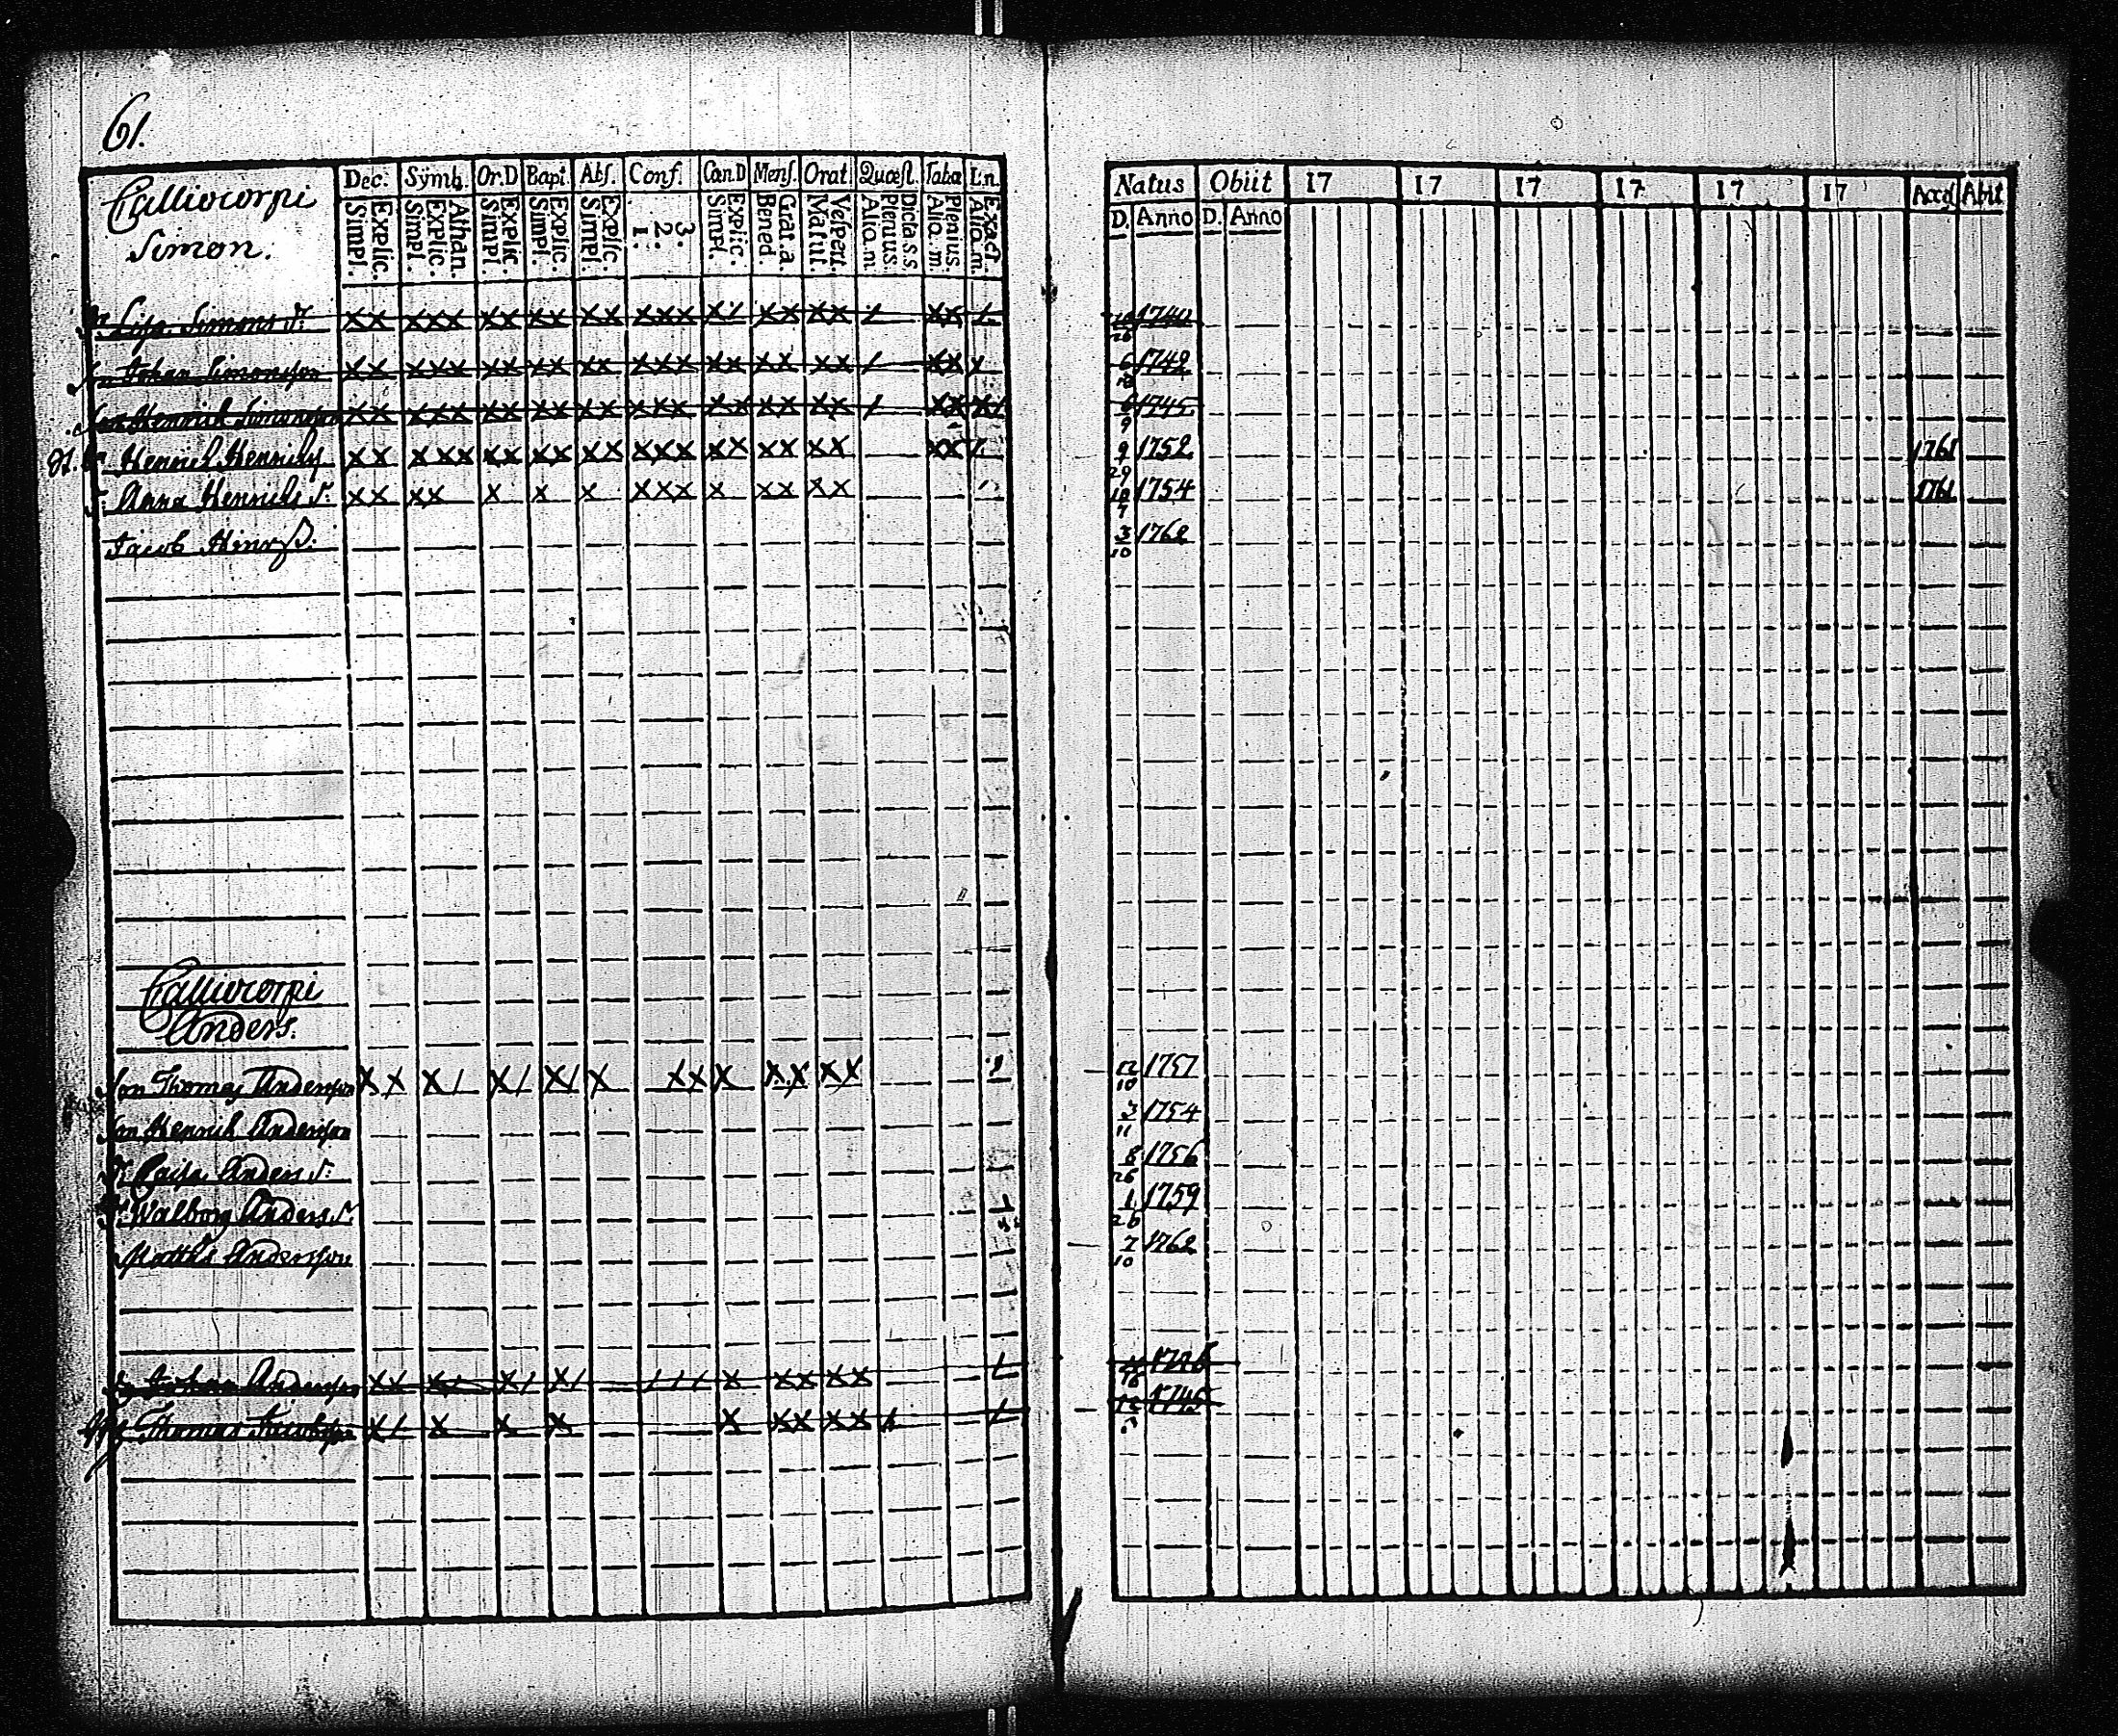 61.
Calliocorpi
Simon.
Dec: Symb. Or.D Bapt. Abs. Conf. Can.D Mens. Orat. Quæst. Taba Ln.
Explic. Simpl. Athan. Explic. Simpl. Explic. Simpl. Explic. Simpl. Explic. Simpl. 3. 2. 1. Explic. Simpl. Grat. a. Bened. Vespert. Matut. Dicta s.s. Plenius. Aliq. m. Plenius. Aliq. m. Exact. Aliq. m.
Natus Obiit 17 17 17 17 17 17 Acces Abiit
D. Anno D. Anno
Lisa Simons d. xx xxx xx xx xx xxx x/ xx xx / xx / 1740
Johan Simonsson xx xxx xx xx xx xxx xx xx xx / xx x 6 1742
Son Henrich Simonsson xx xxx xx xx xx xxx xx xx xx / xx x/ 1745 9
Henric Henrics xx xxx xx xx xx xxx xx xx xx xx / 9 1752 29 1761
Anna Henrichs d. xx xx x x x xxx x xx xx 10 1754 7 1761
Jacob Hinrss: 3 1762 10
Calliocorpi
Anders.
Son Thomas Andersson xx x/ x/ x/ x xx x xx xx 12 1751 10
Son Henrich Andersson 3 1754 11
Caisa Anders d. 8 1756 26
Walborg Anders d. 1 1759 26
Matths Andersson 7 1762 10
Johan Andersson xx x/ x/ x/ /// x xx xx /
Thomas Jacobsson x/ x x x x xx xx / 1745